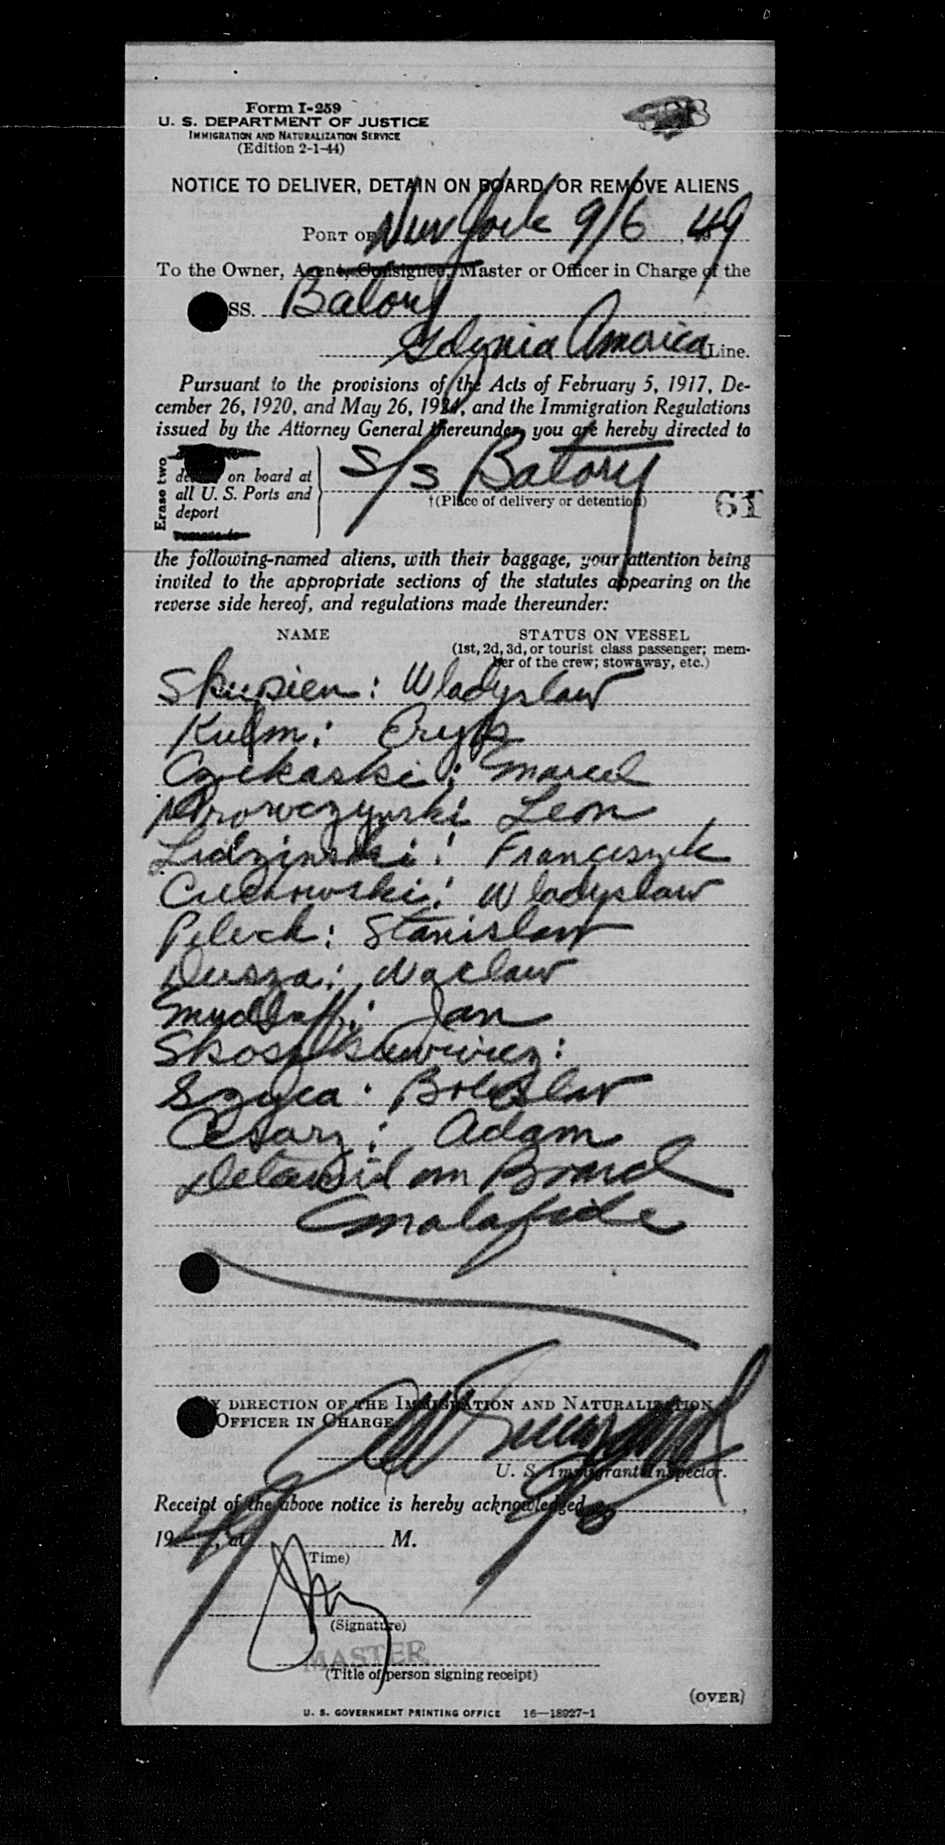 Form I-259
U. S. DEPARTMENT OF JUSTICE
IMMIGRATION AND NATURALIZATION SERVICE
(Edition 2-1-44)
NOTICE TO DELIVER, DETAIN ON BOARD, OR REMOVE ALIENS
PORT OF New York 9/6, 49
To the Owner, Agent, Consignee, Master or Officer in Charge of the
SS. Batory
Gdynia America Line.
Pursuant to the provisions of the Acts of February 5, 1917, De-
cember 26, 1920, and May 26, 1924, and the Immigration Regulations
issued by the Attorney General thereunder, you are hereby directed to
Erase two
on board at
all U. S. Ports and
deport
s/s Batory
†(Place of delivery or detention)
61
the following-named aliens, with their baggage, your attention being
invited to the appropriate sections of the statutes appearing on the
reverse side hereof, and regulations made thereunder:
NAME
STATUS ON VESSEL
(1st, 2d, 3d, or tourist class passenger; mem-
ber of the crew; stowaway, etc.)
Skupien: Wladyslaw
Kulm: Eryk
Czekaski: Marcel
Leon
Lidzinski: Franciszek
Wladyslaw
Peleck: Stanislaw
Dusza: Waclaw
Jan
Szyca: Boleslav
Cesarz: Adam
Detained on Board
malafide
BY DIRECTION OF THE IMMIGRATION AND NATURALIZATION
OFFICER IN CHARGE
U. S. Immigrant Inspector.
Receipt of the above notice is hereby acknowledged
1949, at M.
(Time)
(Signature)
MASTER
(Title of person signing receipt)
(OVER)
U. S. GOVERNMENT PRINTING OFFICE 16—18927-1